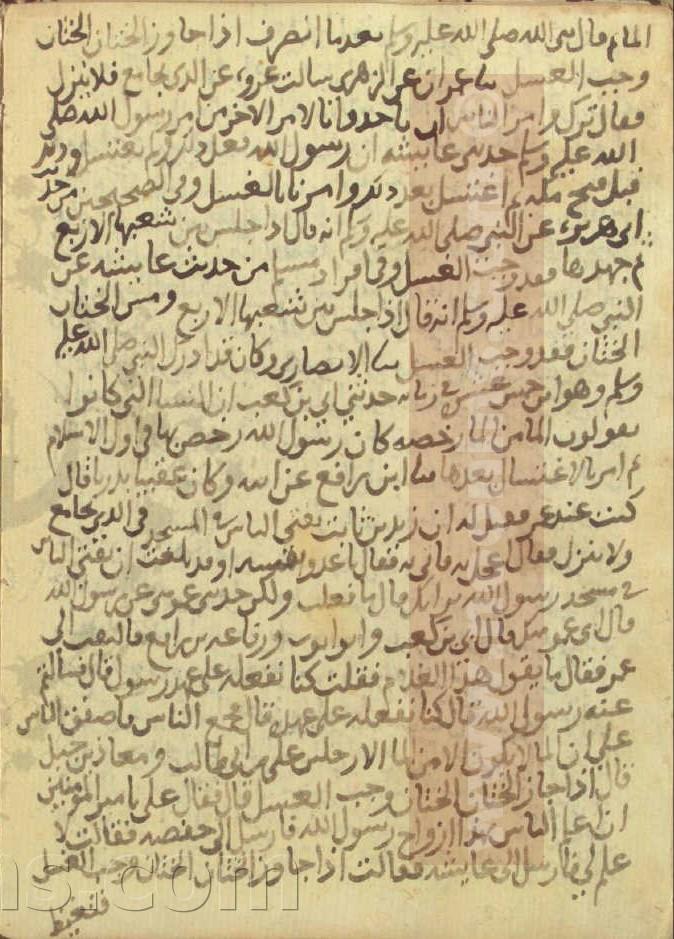 الما ثم قال نبى الله صلى الله عليه وسلم بعدما انصرف اذا جاوز الختان الختان
وجب الغسل عن الزهرى سالت عروه عن الذى يجامع فلا ينزل
فقال ترك وامر الناس ان ياخذوا بالامر الاخر من امر رسول الله صلى
الله عليه وسلم حدثنى عايشه ان رسول الله فعل ذلك ولم يغتسل وذلك
قبل فتح مكه ثم اغتسل بعد ذلك وامرنا بالغسل وفى الصحيحين من حديث
ابى هريره عن النبى صلى الله عليه وسلم انه قال اذا جلس بين شعبها الاربع
ثم جهدها فقد وجب الغسل وفى افراد مسلم من حديث عايشه عن
النبى صلى الله عليه وسلم انه قال اذا جلس بين شعبها الاربع ومس الختان
الختان فقد وجب الغسل الانصارى وكان قد ادرك النبى صلى الله عليه
وسلم وهو ابن خمس عشره فى زمانه حدثنى ابى بن كعب ان الفتيا التى كانوا
يقولون الما من الما رخصه كان رسول الله رخص بها فى اول الاسلام
ثم امر بالاغتسال بعدها ابن رافع عن ابيه وكان عقبيا بدريا قال
كنت عند عمر فقيل له ان زيد بن ثابت يفتى الناس فى المسجد فى الذى يجامع
ولا ينزل فقال عجل به فاتى به فقال يا عدو نفسه او قد بلغت ان تفتى الناس
فى مسجد رسول الله برايك قال ما فعلت ولكن حدثنى عمومتى عن رسول الله
قال اى عمومتك قال ابى بن كعب وابو ايوب ورفاعه بن رافع فالتفت الى
عمر فقال ما يقول هذا الغلام فقلت كنا نفعله على عهد رسول قال فسالتم
عنه رسول الله قال كنا نفعله على عهده قال فجمع الناس فاصفق الناس
على ان الما لا يكون الا من الما الا رجلين على بن ابى طالب ومعاذ بن جبل
قال اذا جاز الختان الختان وجب الغسل قال فقال على يا امير المومنين
ان اعلم الناس بهذا ازواج رسول الله فارسل الى حفصه فقالت لا
علم لى فارسل الى عايشه فقالت اذا جاوز الختان الختان وجب الغسل
فتغيظ